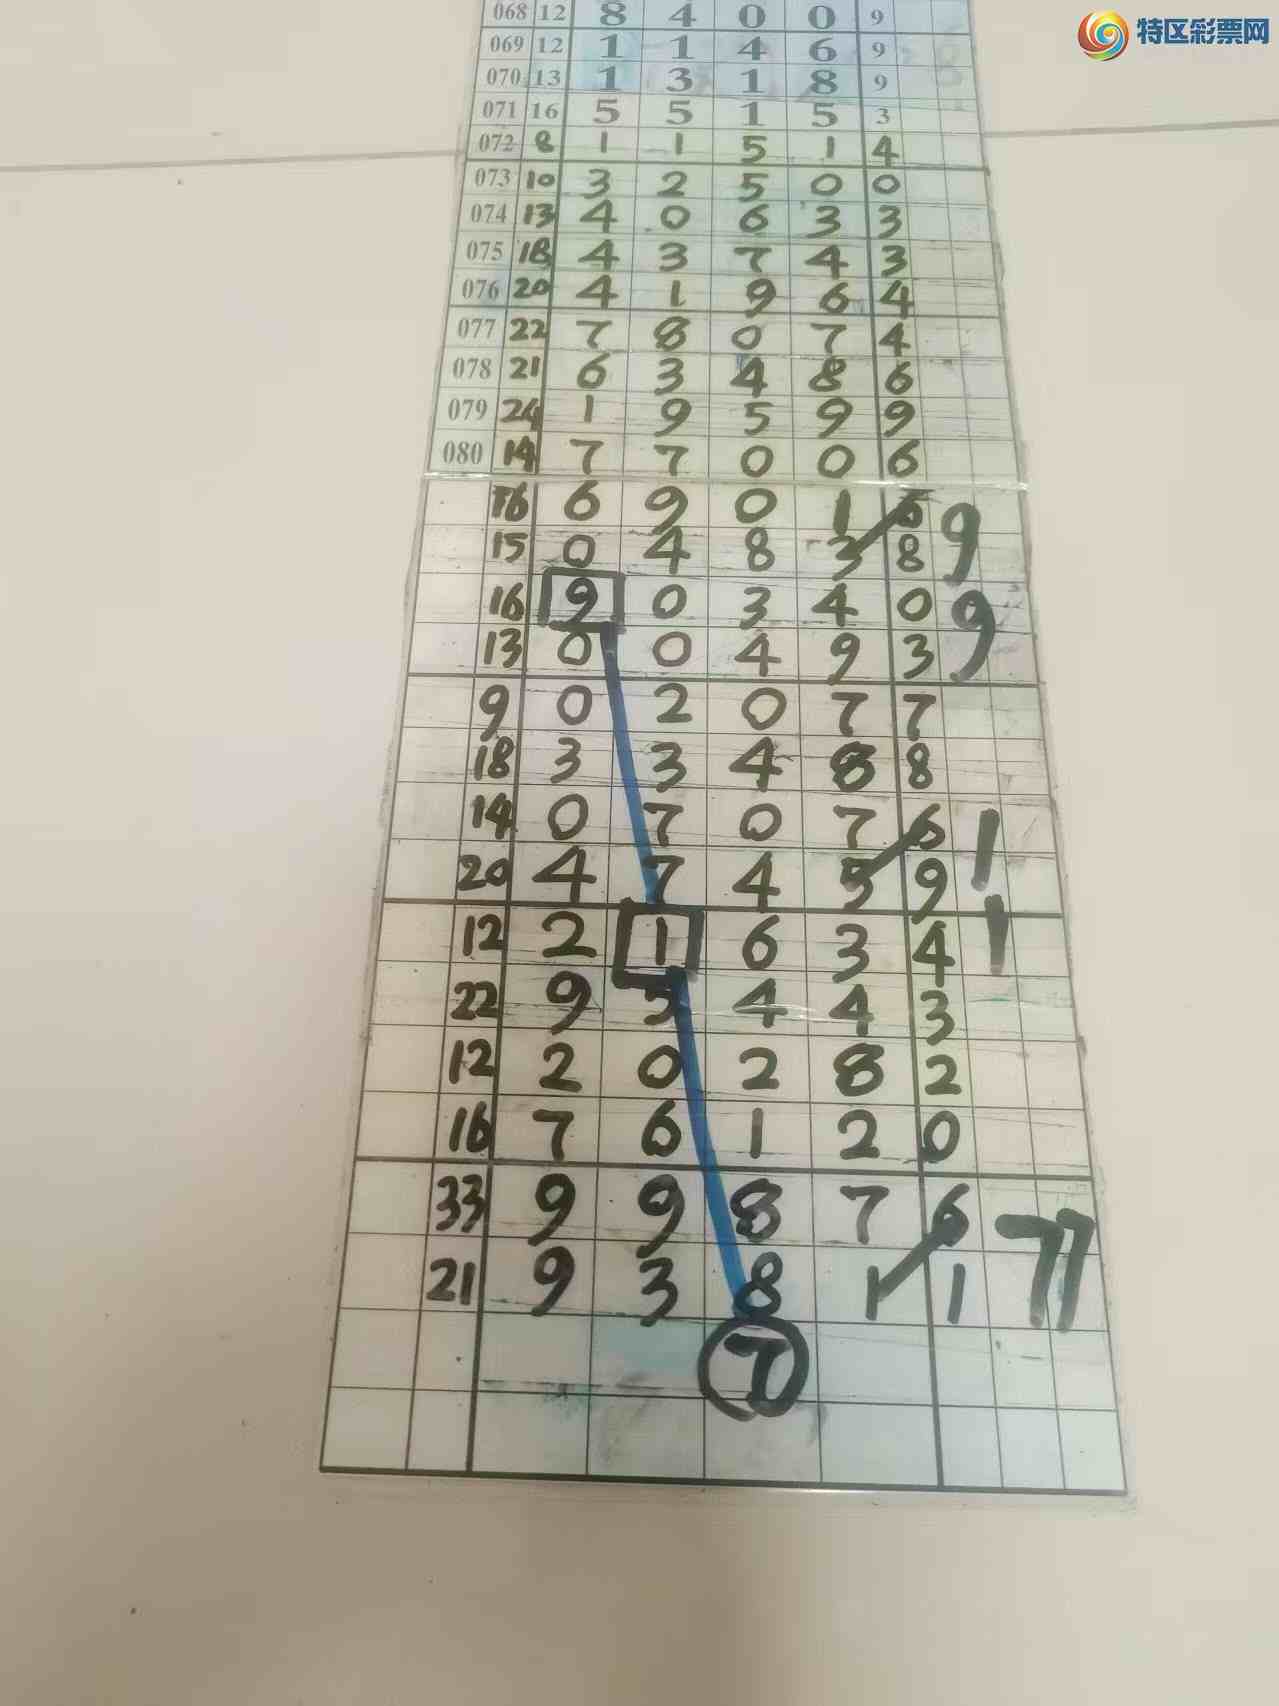 特区彩票网
068 12 8 4 0 0 9
069 12 1 1 4 6 9
070 13 1 3 1 8 9
071 16 5 5 1 5 3
072 8 1 1 5 1 4
073 10 3 2 5 0 0
074 13 4 0 6 3 3
075 18 4 3 7 4 3
076 20 4 1 9 6 4
077 22 7 8 0 7 4
078 21 6 3 4 8 6
079 24 1 9 5 9 9
080 14 7 7 0 0 6
16 6 9 0 1 9
15 0 4 8 3 8
16 9 0 3 4 0 9
13 0 0 4 9 3
9 0 2 0 7 7
18 3 3 4 8 8
14 0 7 0 7 6 1
20 4 7 4 5 9
12 2 1 6 3 4 1
22 9 5 4 4 3
12 2 0 2 8 2
16 7 6 1 2 0
33 9 9 8 7 6 77
21 9 3 8 1 1
7